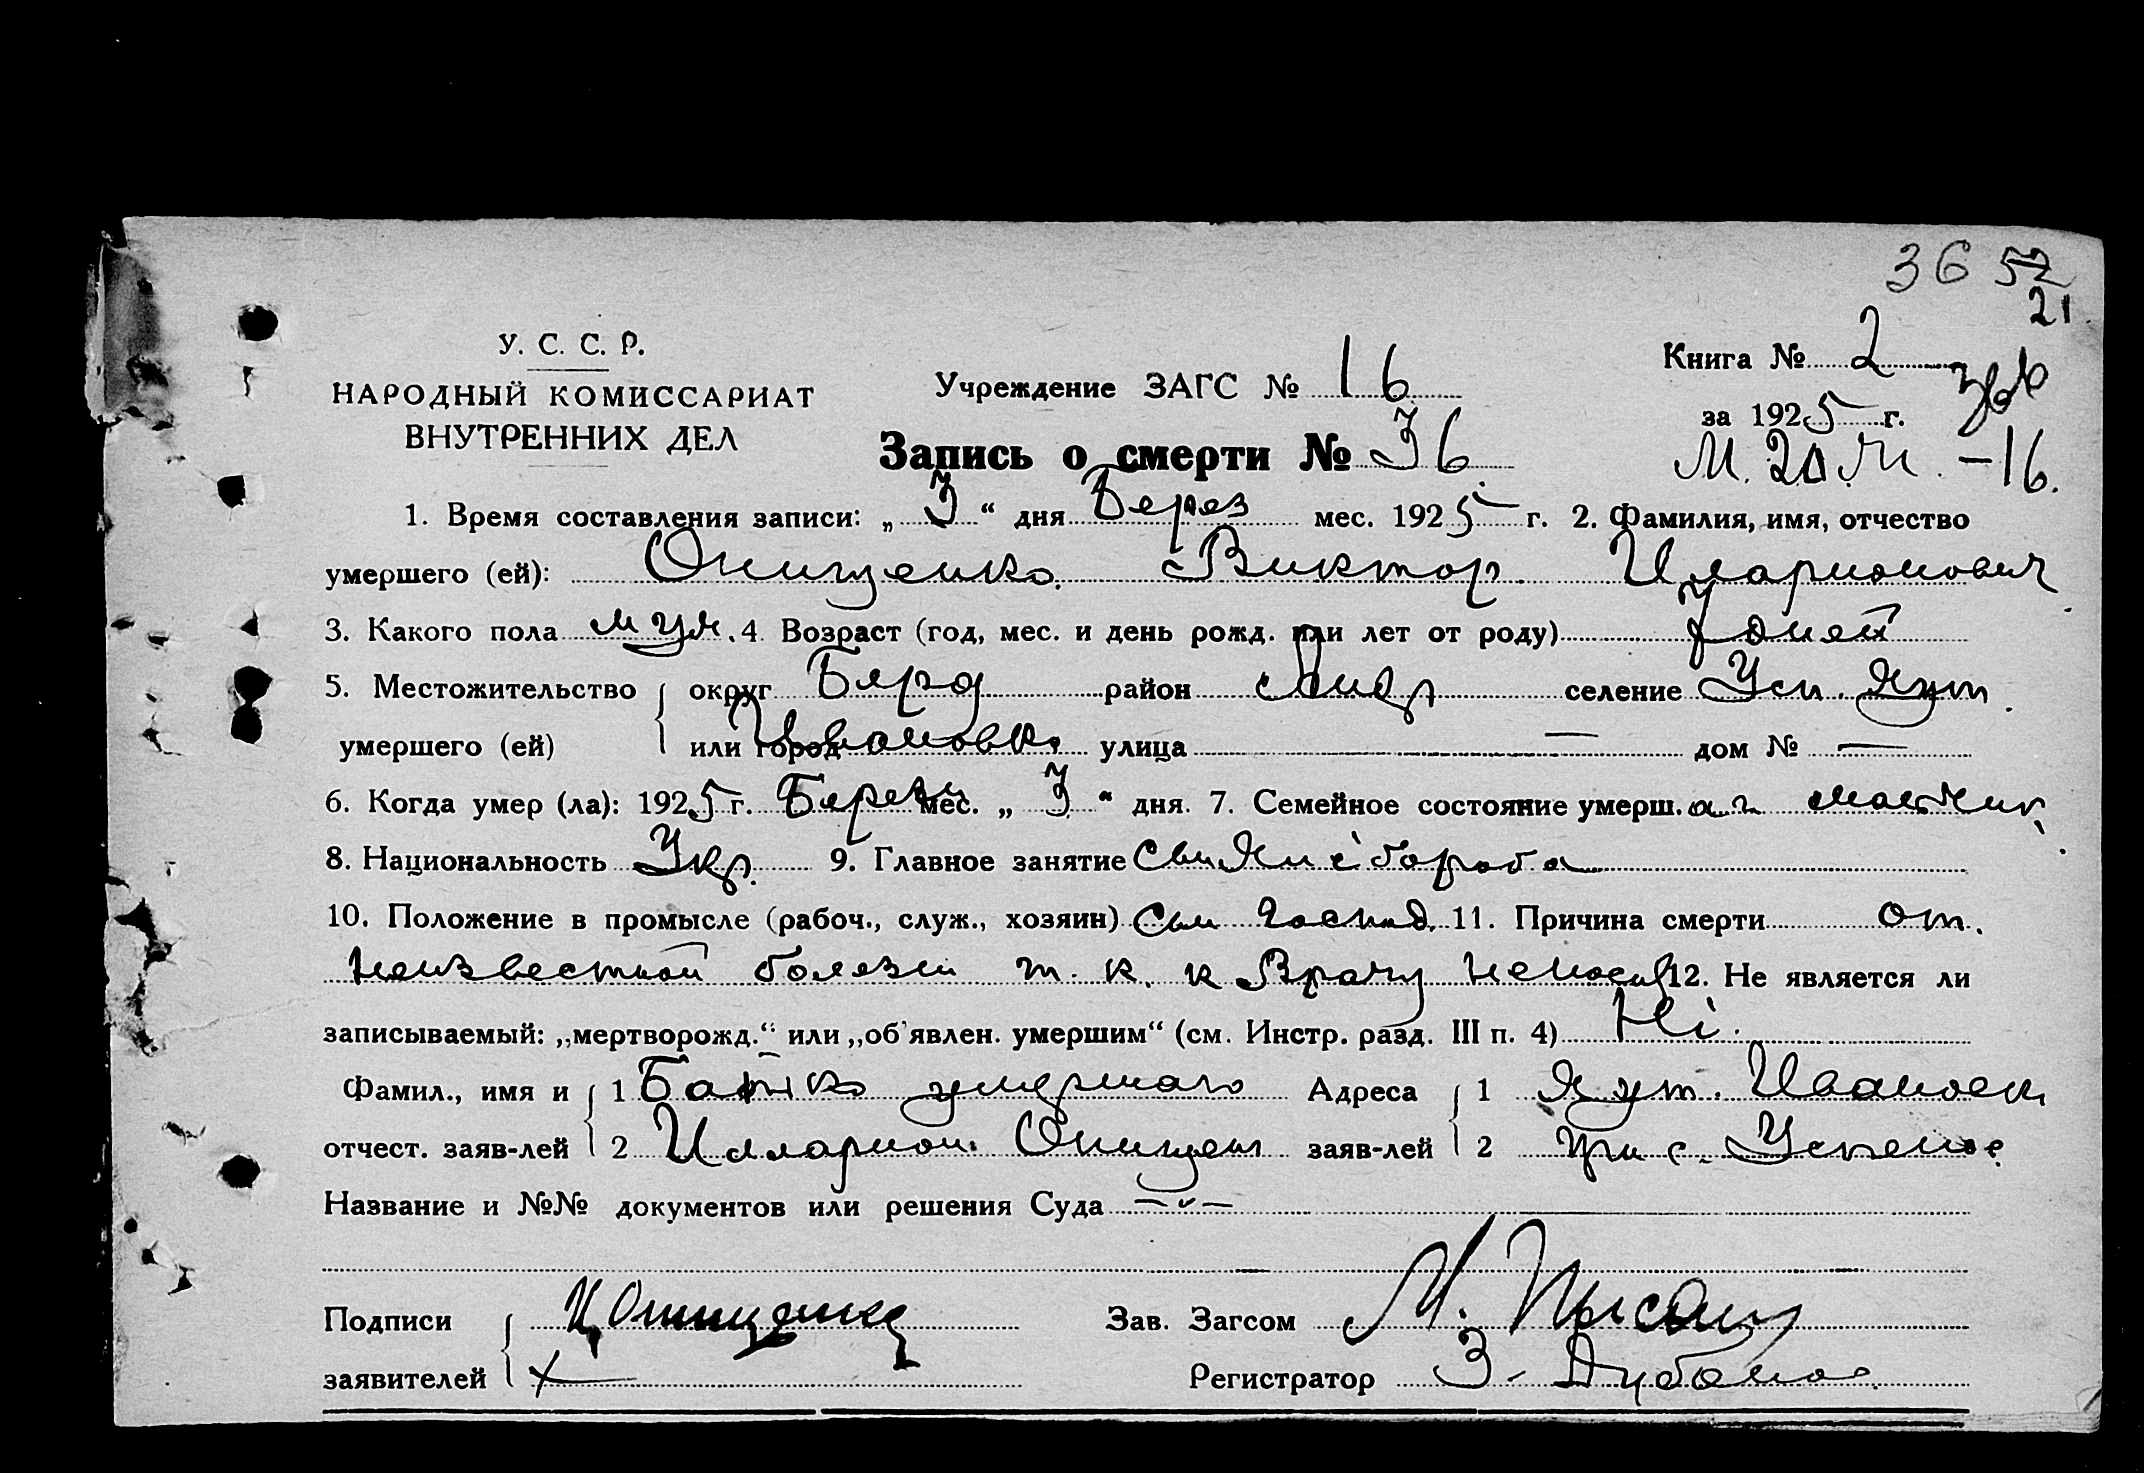 36 52
21
У. С. С. Р.
НАРОДНЫЙ КОМИССАРИАТ
ВНУТРЕННИХ ДЕЛ
Учреждение ЗАГС № 16
Книга № 2
за 1925 г.
Запись о смерти № 36
М. 20 -16.
1. Время составления записи: „3“ дня Берез мес. 1925 г. 2. Фамилия, имя, отчество
умершего (ей): Онищенко Виктор Иларионович
3. Какого пола муж. 4. Возраст (год, мес. и день рожд. или лет от роду) дней
5. Местожительство округ Бярд район Андр селение Усп. Хут.
умершего (ей) или город Ивановка улица — дом № —
6. Когда умер (ла): 1925 г. Березн мес. „3“ дня. 7. Семейное состояние умерш.
8. Национальность Укр. 9. Главное занятие
10. Положение в промысле (рабоч., служ., хозяин) Син Господ. 11. Причина смерти от.
неизвестной болезни т. к. к врачу 12. Не является ли
записываемый: „мертворожд.“ или „об'явлен. умершим“ (см. Инстр. разд. III п. 4) Ні.
Фамил., имя и 1 Батько умершаго Адреса 1 Хут. Ивановк
отчест. заяв-лей 2 Илларион Онищен заяв-лей 2 при с. Успено
Название и №№ документов или решения Суда —"—
Подписи И Онищенко Зав. Загсом М.
заявителей Х Регистратор З. Дубано